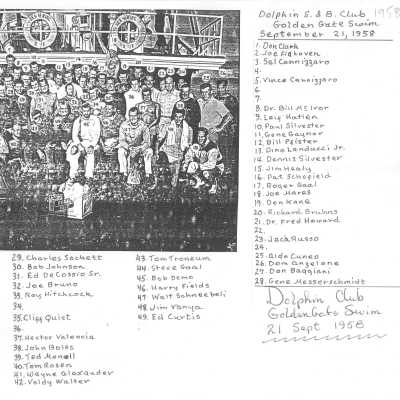 Dolphin S. & B. Club 1958
Golden Gate Swim
September 21, 1958
1. Don Clark
2. Joe Eidhoven
3. Sal Cannizzaro
4.
5. Vince Cannizzaro
6
7
8. Dr. Bill McIvor
9. Leif Hatlen
10. Paul Silvester
11. Gene Gaynor
12. Bill Pfister
13. Dino Landucci Jr.
14. Dennis Silvester
15. Jim Healy
16. Pat Schofield
17. Roger Gaal
18. Joe Mares
19. Don Kane
20. Richard Bruhns
21. Dr. Fred Howard
22.
23. Jack Russo
24.
25. Aldo Cuneo
26. Dom Angelone
27. Don Baggiani
28. Gene Messerschmidt
29. Charles Sackett
30. Bob Johnson
31. Ed DeCossio Sr.
32. Joe Bruno
33. Roy Hitchcock
34.
35. Cliff Quiet
36.
37. Hector Valencia
38. John Boles
39. Ted Monell
40. Tom Rosen
41. Wayne Alexander
42. Valdy Walter
43. Tom Troneum
44. Steve Gaal
45. Bob Demo
46. Harry Fields
47. Walt Schneebeli
48. Jim Vanya
49. Ed Curtis
Dolphin Club
Golden Gate Swim
21 Sept 1958